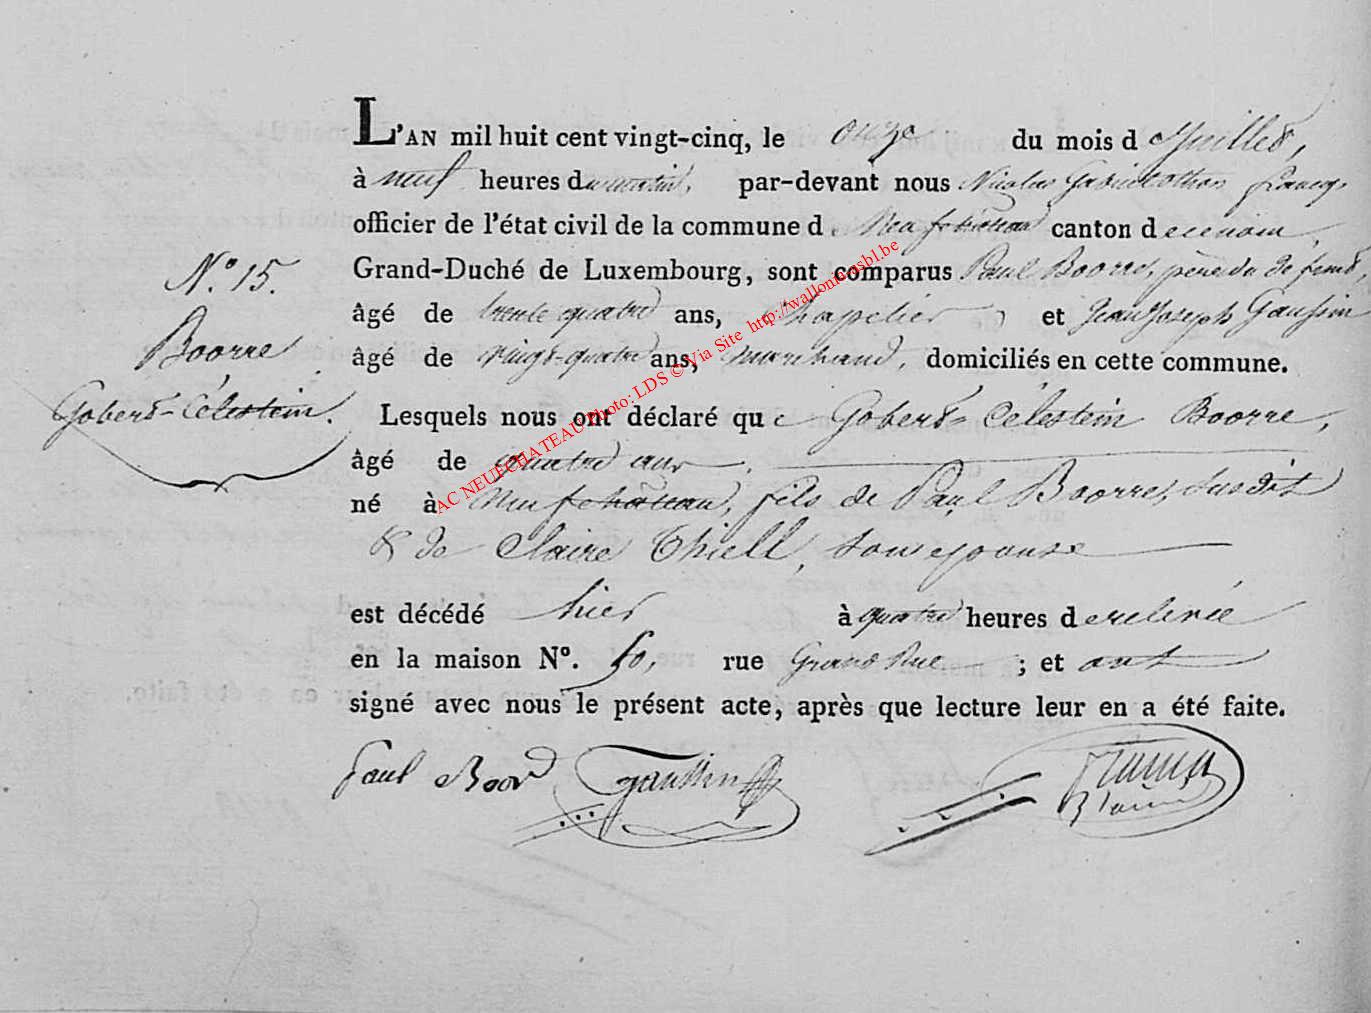 L'AN mil huit cent vingt-cinq, le onze du mois d Juillet,
à neuf heures du matin, par-devant nous Nicolas
officier de l'état civil de la commune d e Neufchateau canton d ece nom,
N.° 15. Grand-Duché de Luxembourg, sont comparus Paul Boorre, père du defunt,
âgé de trente quatre ans, Chapelier et Jean Joseph Gaussin
Boorre âgé de vingt-quatre ans, marchand, domiciliés en cette commune.
Gobert-Célestein. Lesquels nous ont déclaré qu e Gobert-Célestein Boorre,
âgé de quatre ans
né à Neufchateau, fils de Paul Boorre, susdit
& de Claire Thiell, son epouse
est décédé hier à quatre heures d erelevée
en la maison N°. 50, rue Grand Rue ; et ont
signé avec nous le présent acte, après que lecture leur en a été faite.
Paul Boor Gaussin
AC NEUFCHATEAU Photo: LDS © Via Site http://walloniaasbl.be